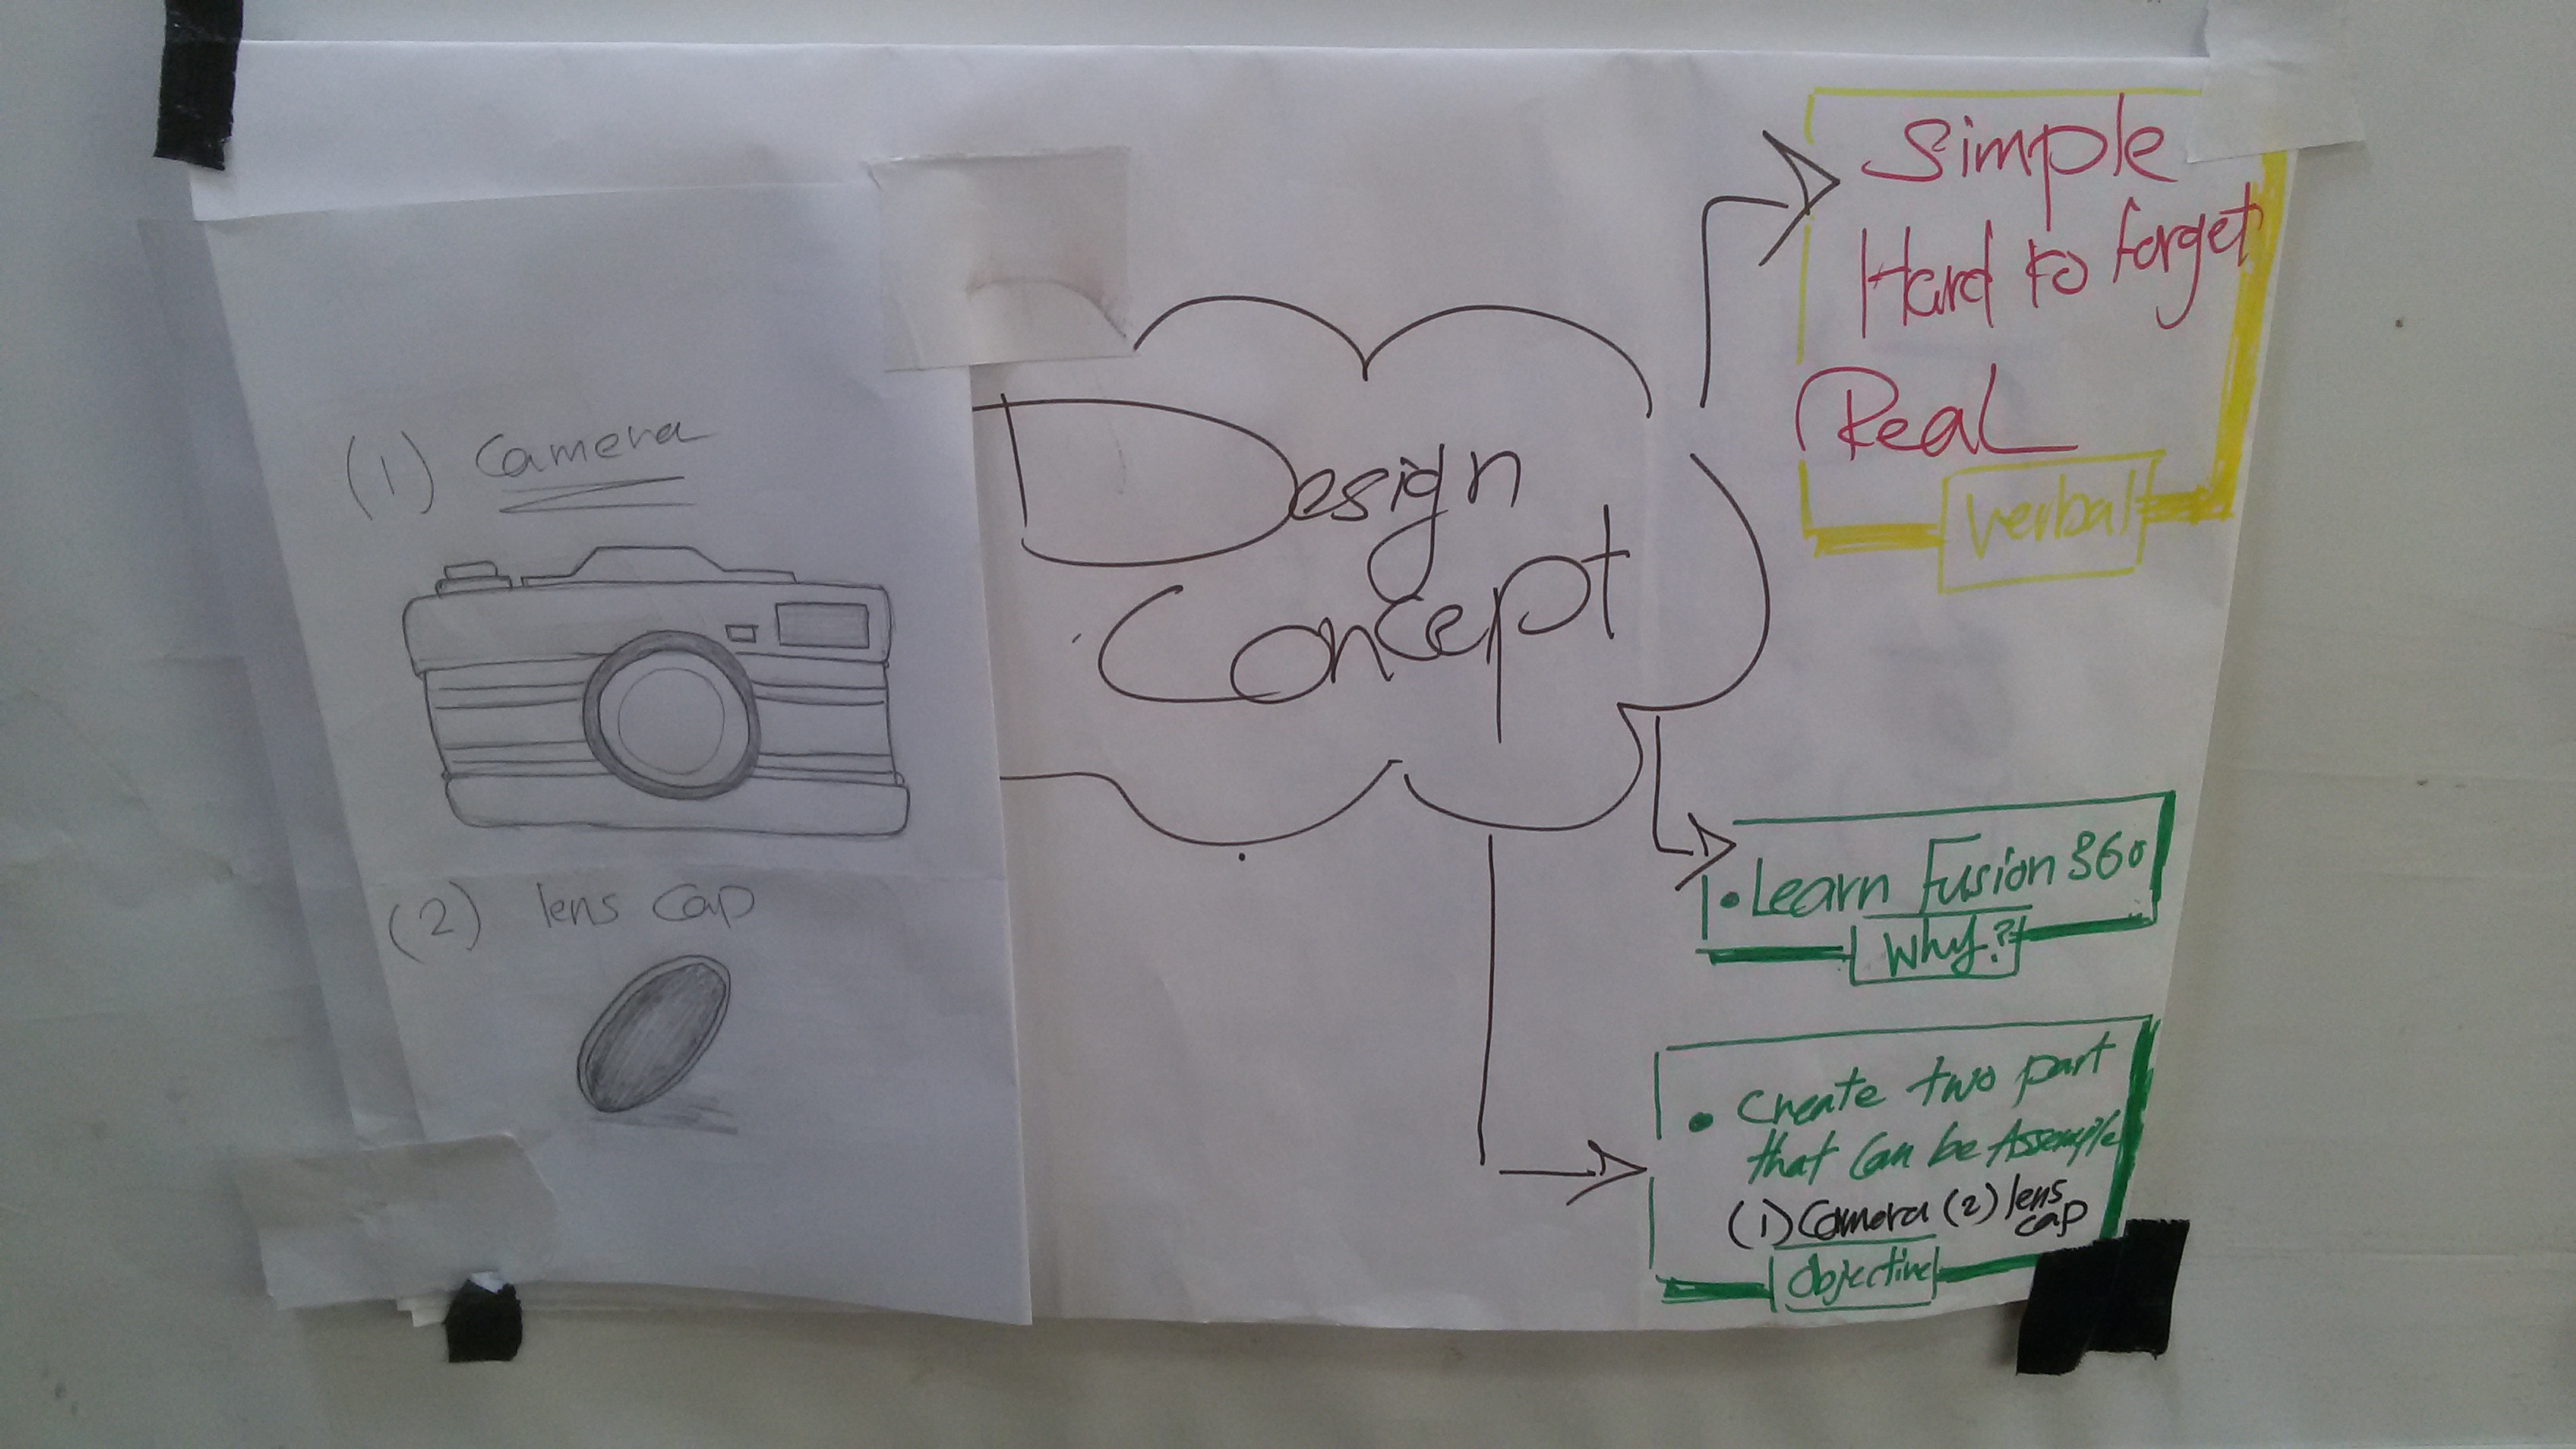 (1) Camera
(2) lens cap
Design
Concept
Simple
Hard to forget
Real
Verbal
• Learn Fusion 360
Why?
• Create two part
that can be Assemple
(1) Camera (2) lens
cap
Objective